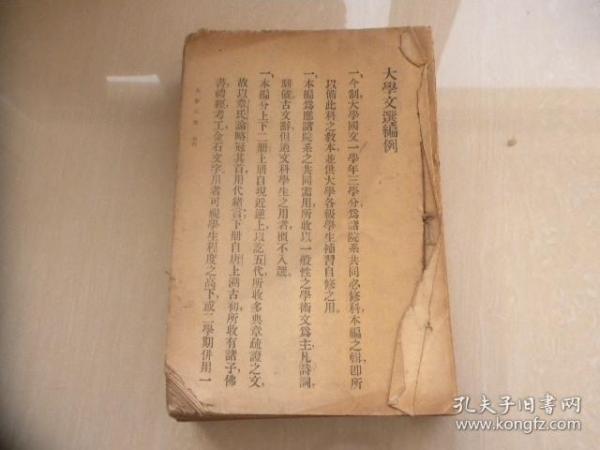 大學文選編例
一、今制大學國文一學年三學分爲諸院系共同必修科本編之輯卽所
以備此科之教本並供大學各級學生補習自修之用。
一、本編爲應諸院系之共同需用所收以一般性之學術文爲主凡詩詞、
駢儷古文辭但適文科學生之用者槪不入選。
一、本編分上下二册上册自現近遡上以訖五代所收多典章疏證之文、
故以章氏論略冠其首用代緒言下册自唐上溯古初所收有諸子佛
書禮經考工金石文字用者可視學生程度之高下或二學期併用一
孔夫子旧書网
www.kongfz.com